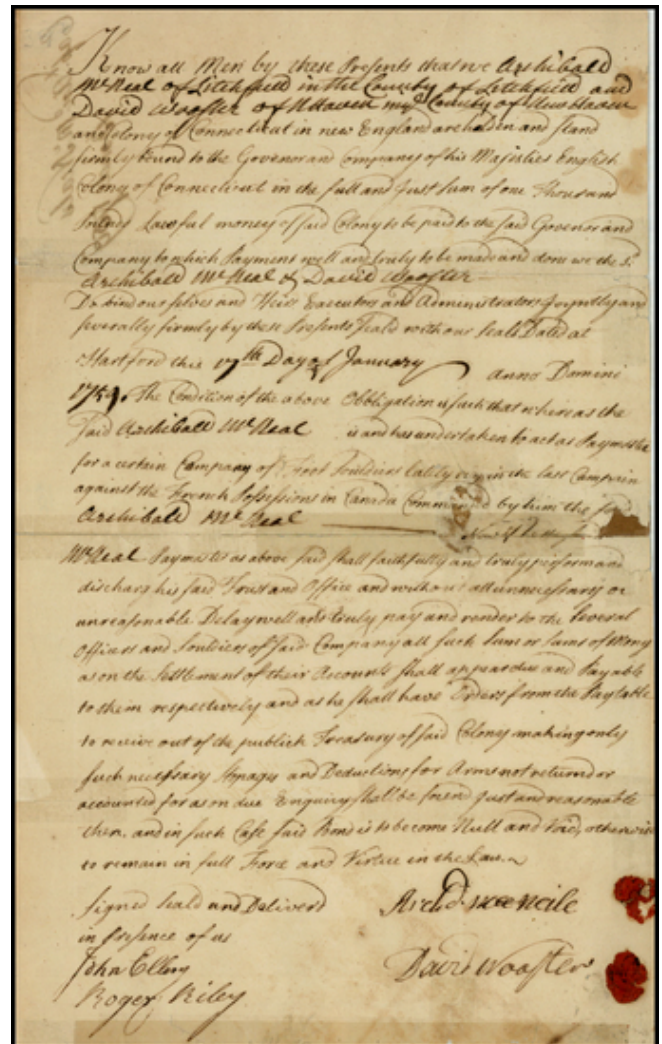 Know all Men by these Presents that we Archibald
McNeal of Litchfield in the County of Litchfield and
David Wooster of NHaven in ye County of New haven
and Colony of Connecticut in new England are holden and stand
firmly bound to the Govenor and Company of his Majesties English
Colony of Connecticut in the full and Just Sum of one Thousand
Pounds Lawful money of said Colony to be paid to the said Govenor and
Company to which Payment well and truly to be made and done we the sd.
Archibald McNeal & David Wooster
Do bind our selves and Heirs Executors and Administrators Joyntly and
severally firmly by these Presents Seald with our Seals Dated at
Hartford this 17th Day of January Anno Domini
1759. The Condition of the above Obbligation is such that whereas the
Said Archibald McNeal is and has undertaken to act as Paymaster
for a certain Company of Foot Souldiers in the last Campain
against the French Possessions in Canada Commanded by him the sd
Archibald McNeal
McNeal Paymaster as above said shall faithfully and truly perform and
discharg his said Trust and Office and without all unnecessary or
unreasonable Delay well and truly pay and render to the several
Officers and Souldiers of said Company all such Sum or Sums of Mony
as on the Settlement of their Accounts shall appear due and Payable
to them respectively and as he shall have Orders from the Paytable
to receive out of the publick Treasury of said Colony making only
such necessary Stopages and Deductions for Arms not returnd or
accounted for as on due Enquiry shall be found Just and reasonable
then, and in such Case said Bond is to become Null and Void, otherwise
to remain in full Force and Virtue in the Law.
Signed Seald and Deliverd
in Presence of us
John Ellery
Roger Riley
Archd. mcneile
David Wooster